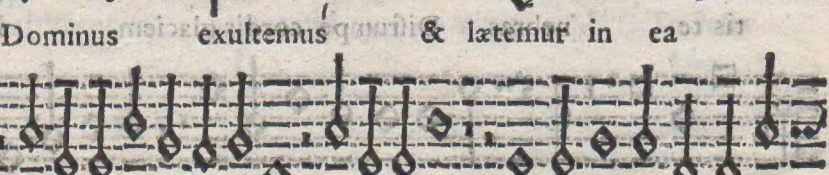 Dominus exultemus & lætemur in ea